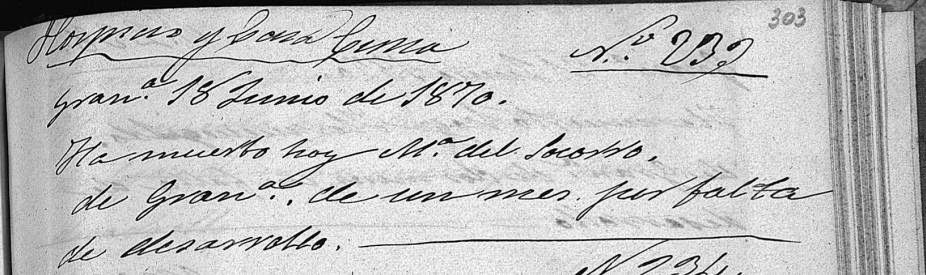 303
Hospicio y Casa Cuna
N.º 233
Gran.ª 18 Junio de 1870.
Ha muerto hoy M.ª del Socorro.
de Gran.ª. de un mes. por falta
de desarrollo.
N 234